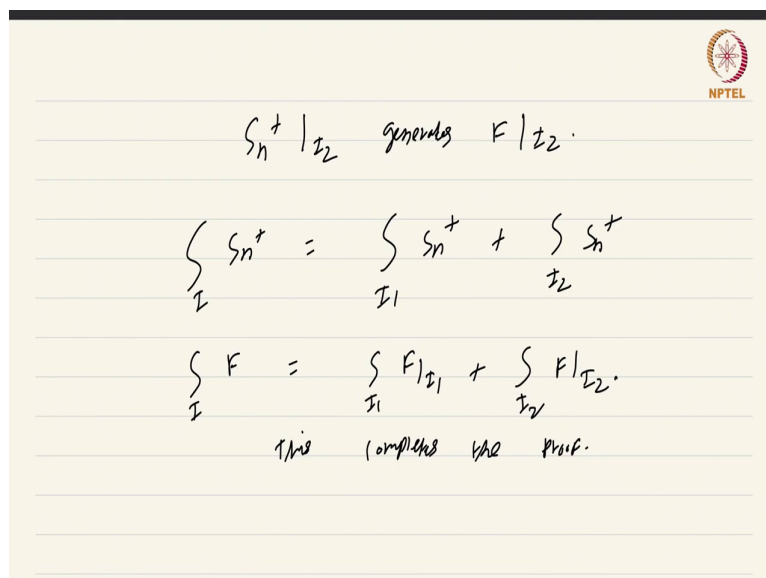 NPTEL
Sn⁺ |I2 generates F|I2.
∫I Sn⁺ = ∫I1 Sn⁺ + ∫I2 Sn⁺
∫I F = ∫I1 F|I1 + ∫I2 F|I2.
this completes the proof.